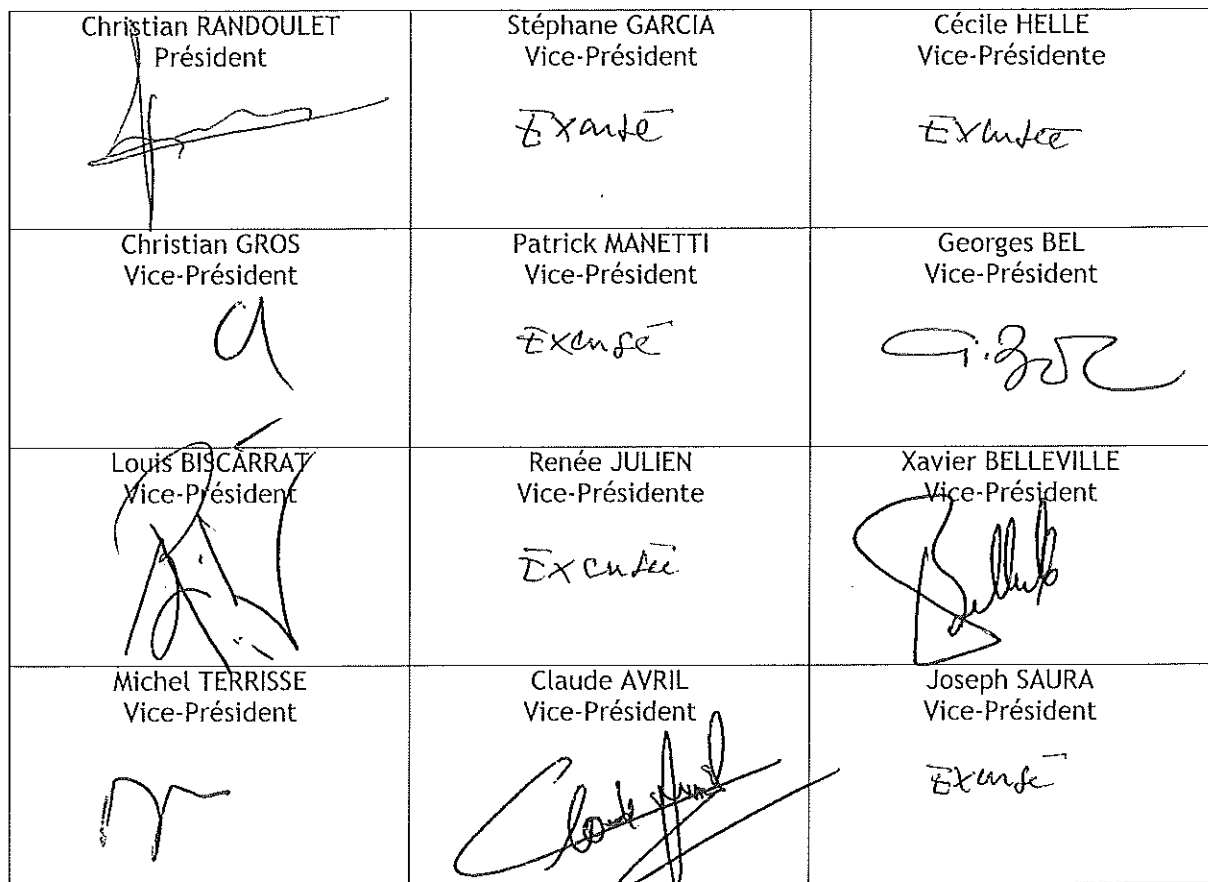 Christian RANDOULET
Président
Stéphane GARCIA
Vice-Président
Excusé
Cécile HELLE
Vice-Présidente
Excusée
Christian GROS
Vice-Président
Patrick MANETTI
Vice-Président
Excusé
Georges BEL
Vice-Président
Louis BISCARRAT
Vice-Président
Renée JULIEN
Vice-Présidente
Excusée
Xavier BELLEVILLE
Vice-Président
Michel TERRISSE
Vice-Président
Claude AVRIL
Vice-Président
Joseph SAURA
Vice-Président
Excusé